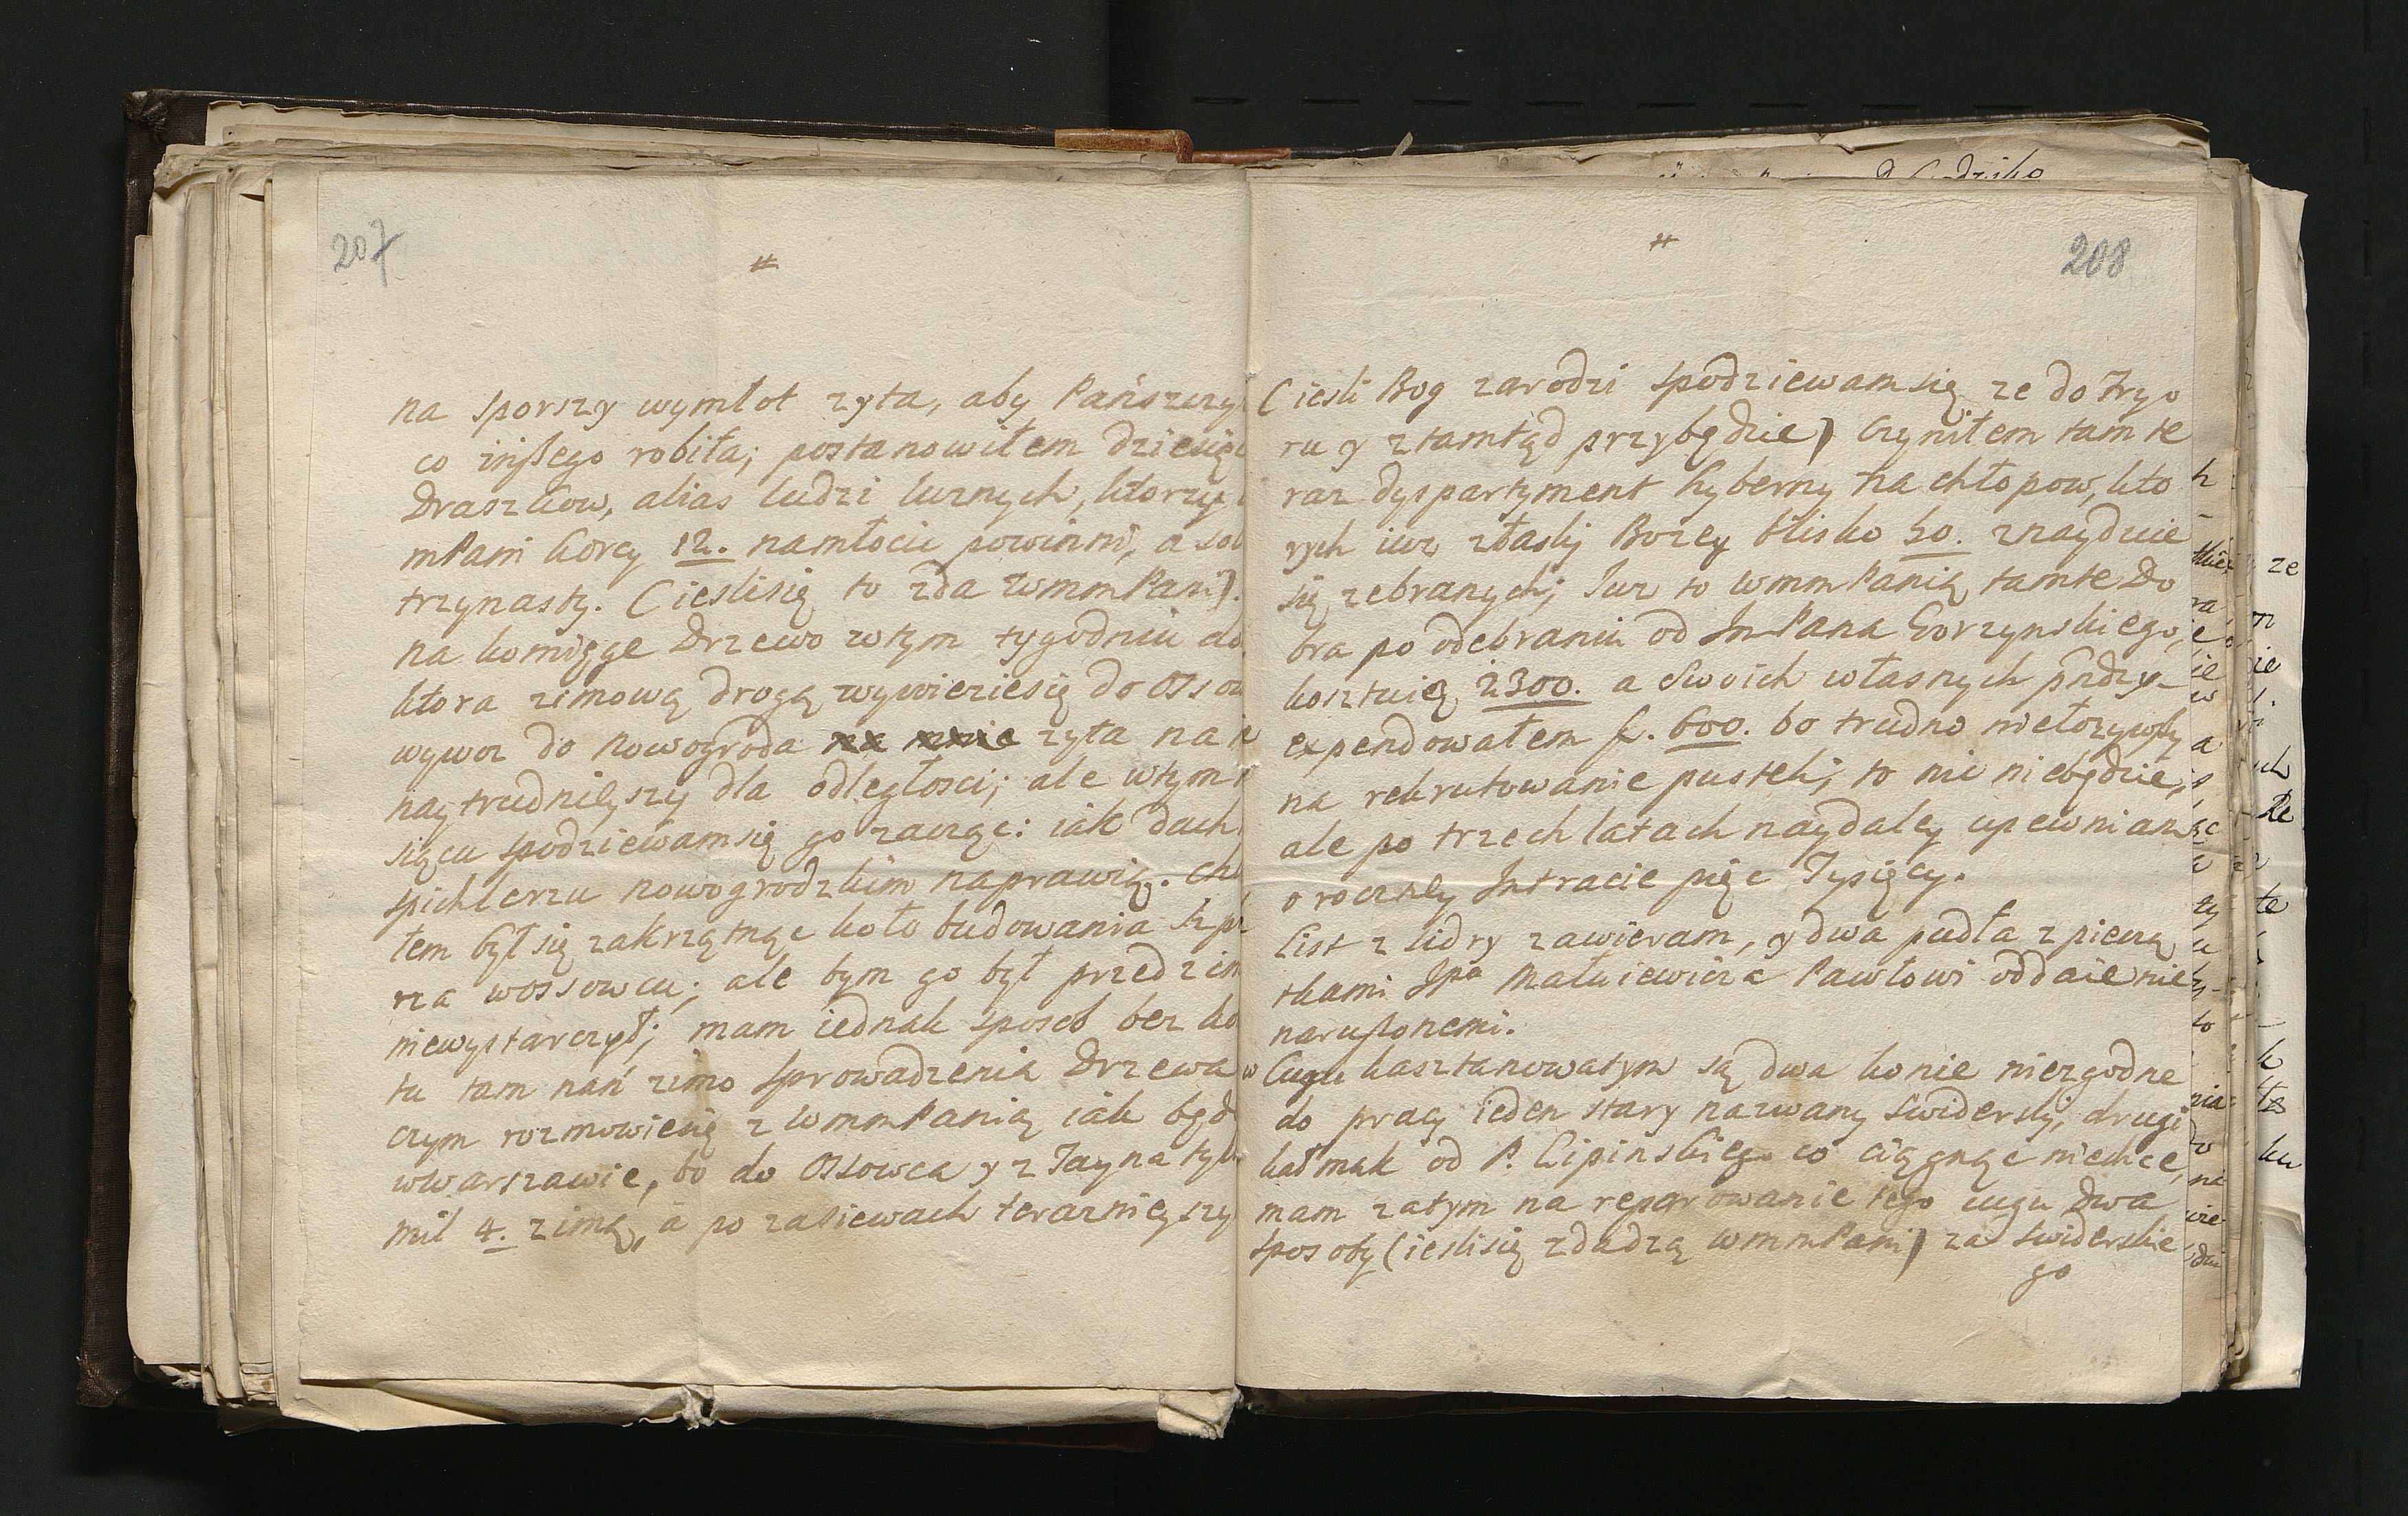 207
#
na sporszy wymłot zyta, aby Pańszczy
co inszego robiła; postanowiłem dziesię
Draszkow, alias ludzi luznych, ktorzy
mPani korcy 12. namłocic powinni, a so
trzynasty. (ieslisię to zda WmmPani).
na komięgę Drzewo wtym tygodniu do
ktora zimową drogą wywieziesię do Osso
wywoz do Nowogroda zyta na
naytrudnieyszy dla odległosci; ale wtym
siącu spodziewamsię go zacząc: iak dach
spichlerzu nowogrodzkim naprawią. Chc
łem był się zakrzątnąc koło budowania szp
rza wossowcu; ale bym go był przed zim
niewystarczył; mam iednak sposob bez ko
tu tam nań zimo sprowadzenia Drzewa
czym rozmowiesię z WmmPanią iak będę
wWarszawie, bo do Ossowca y z Tayna tyl
mil 4. zimą, a po zasiewach terazniey szy
208
#
(iesli Bog zarodzi spodziewamsię ze do Tryo
ru y ztamtąd przybędzie) Czyniłem tam te
raz dyspartyment hyberny na chłopow, kto
rych iuz złaski Bozey blisko 50. znayduie
się zebranych; Juz to WmmPanią tamte Do
bra po odebraniu od JmPana Gorzynskiego,
kosztuią 2300. a Swoich własnych pndzy
expendowałem f. 600. bo trudno niełozywszy
na rekrutowanie pustek, to nic niebędzie,
ale po trzech latach naydaley upewniam
o roczney Intracie pięc Tysięcy.
List z Lidry zawieram, y dwa pudła z pieczą
tkami Jpa Matuiewicza Pawłowi oddaie nie
naruszonemi.
w Cugu kasztanowatym są dwa konie niezgodne
do pracy ieden stary nazwany Swiderski, drugi
kałmuk od P. Lipinskiego co ciągnąc niechce,
mam zatym na reparowanie tego cugu dwa
sposoby (ieslisię zdadzą WmmPani) za Swiderskie
go